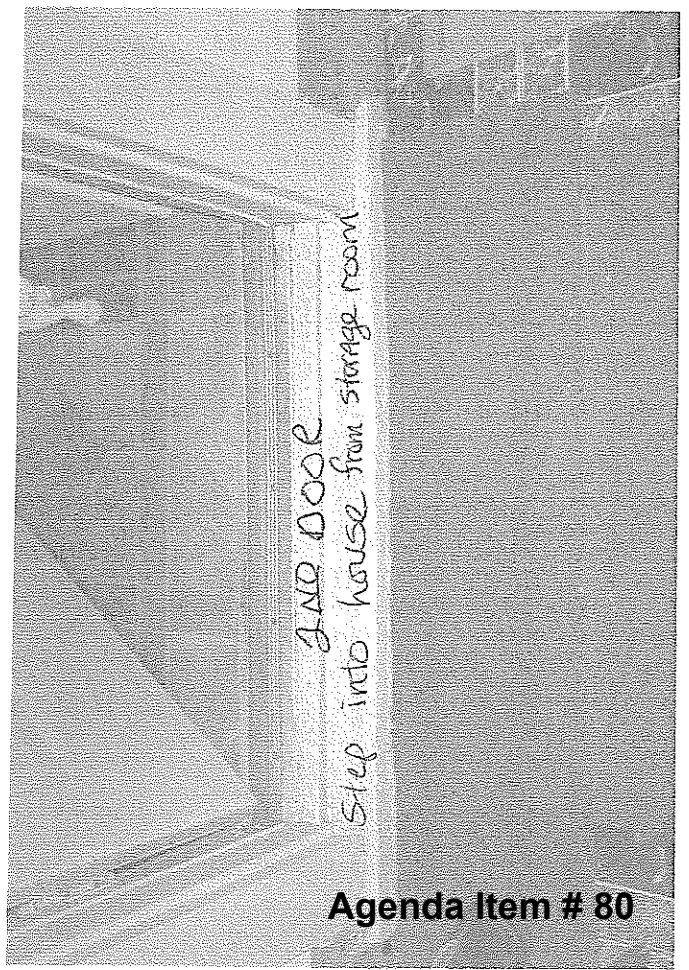 2ND DOOR
Step into house from storage room
Agenda Item # 80